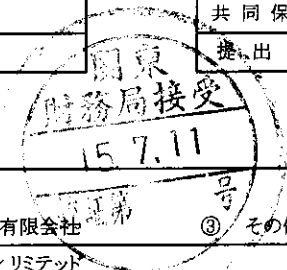 共同保
提出
関東
財務局接受
15.7.11
第 号
有限会社 ③ その他
リミテッド